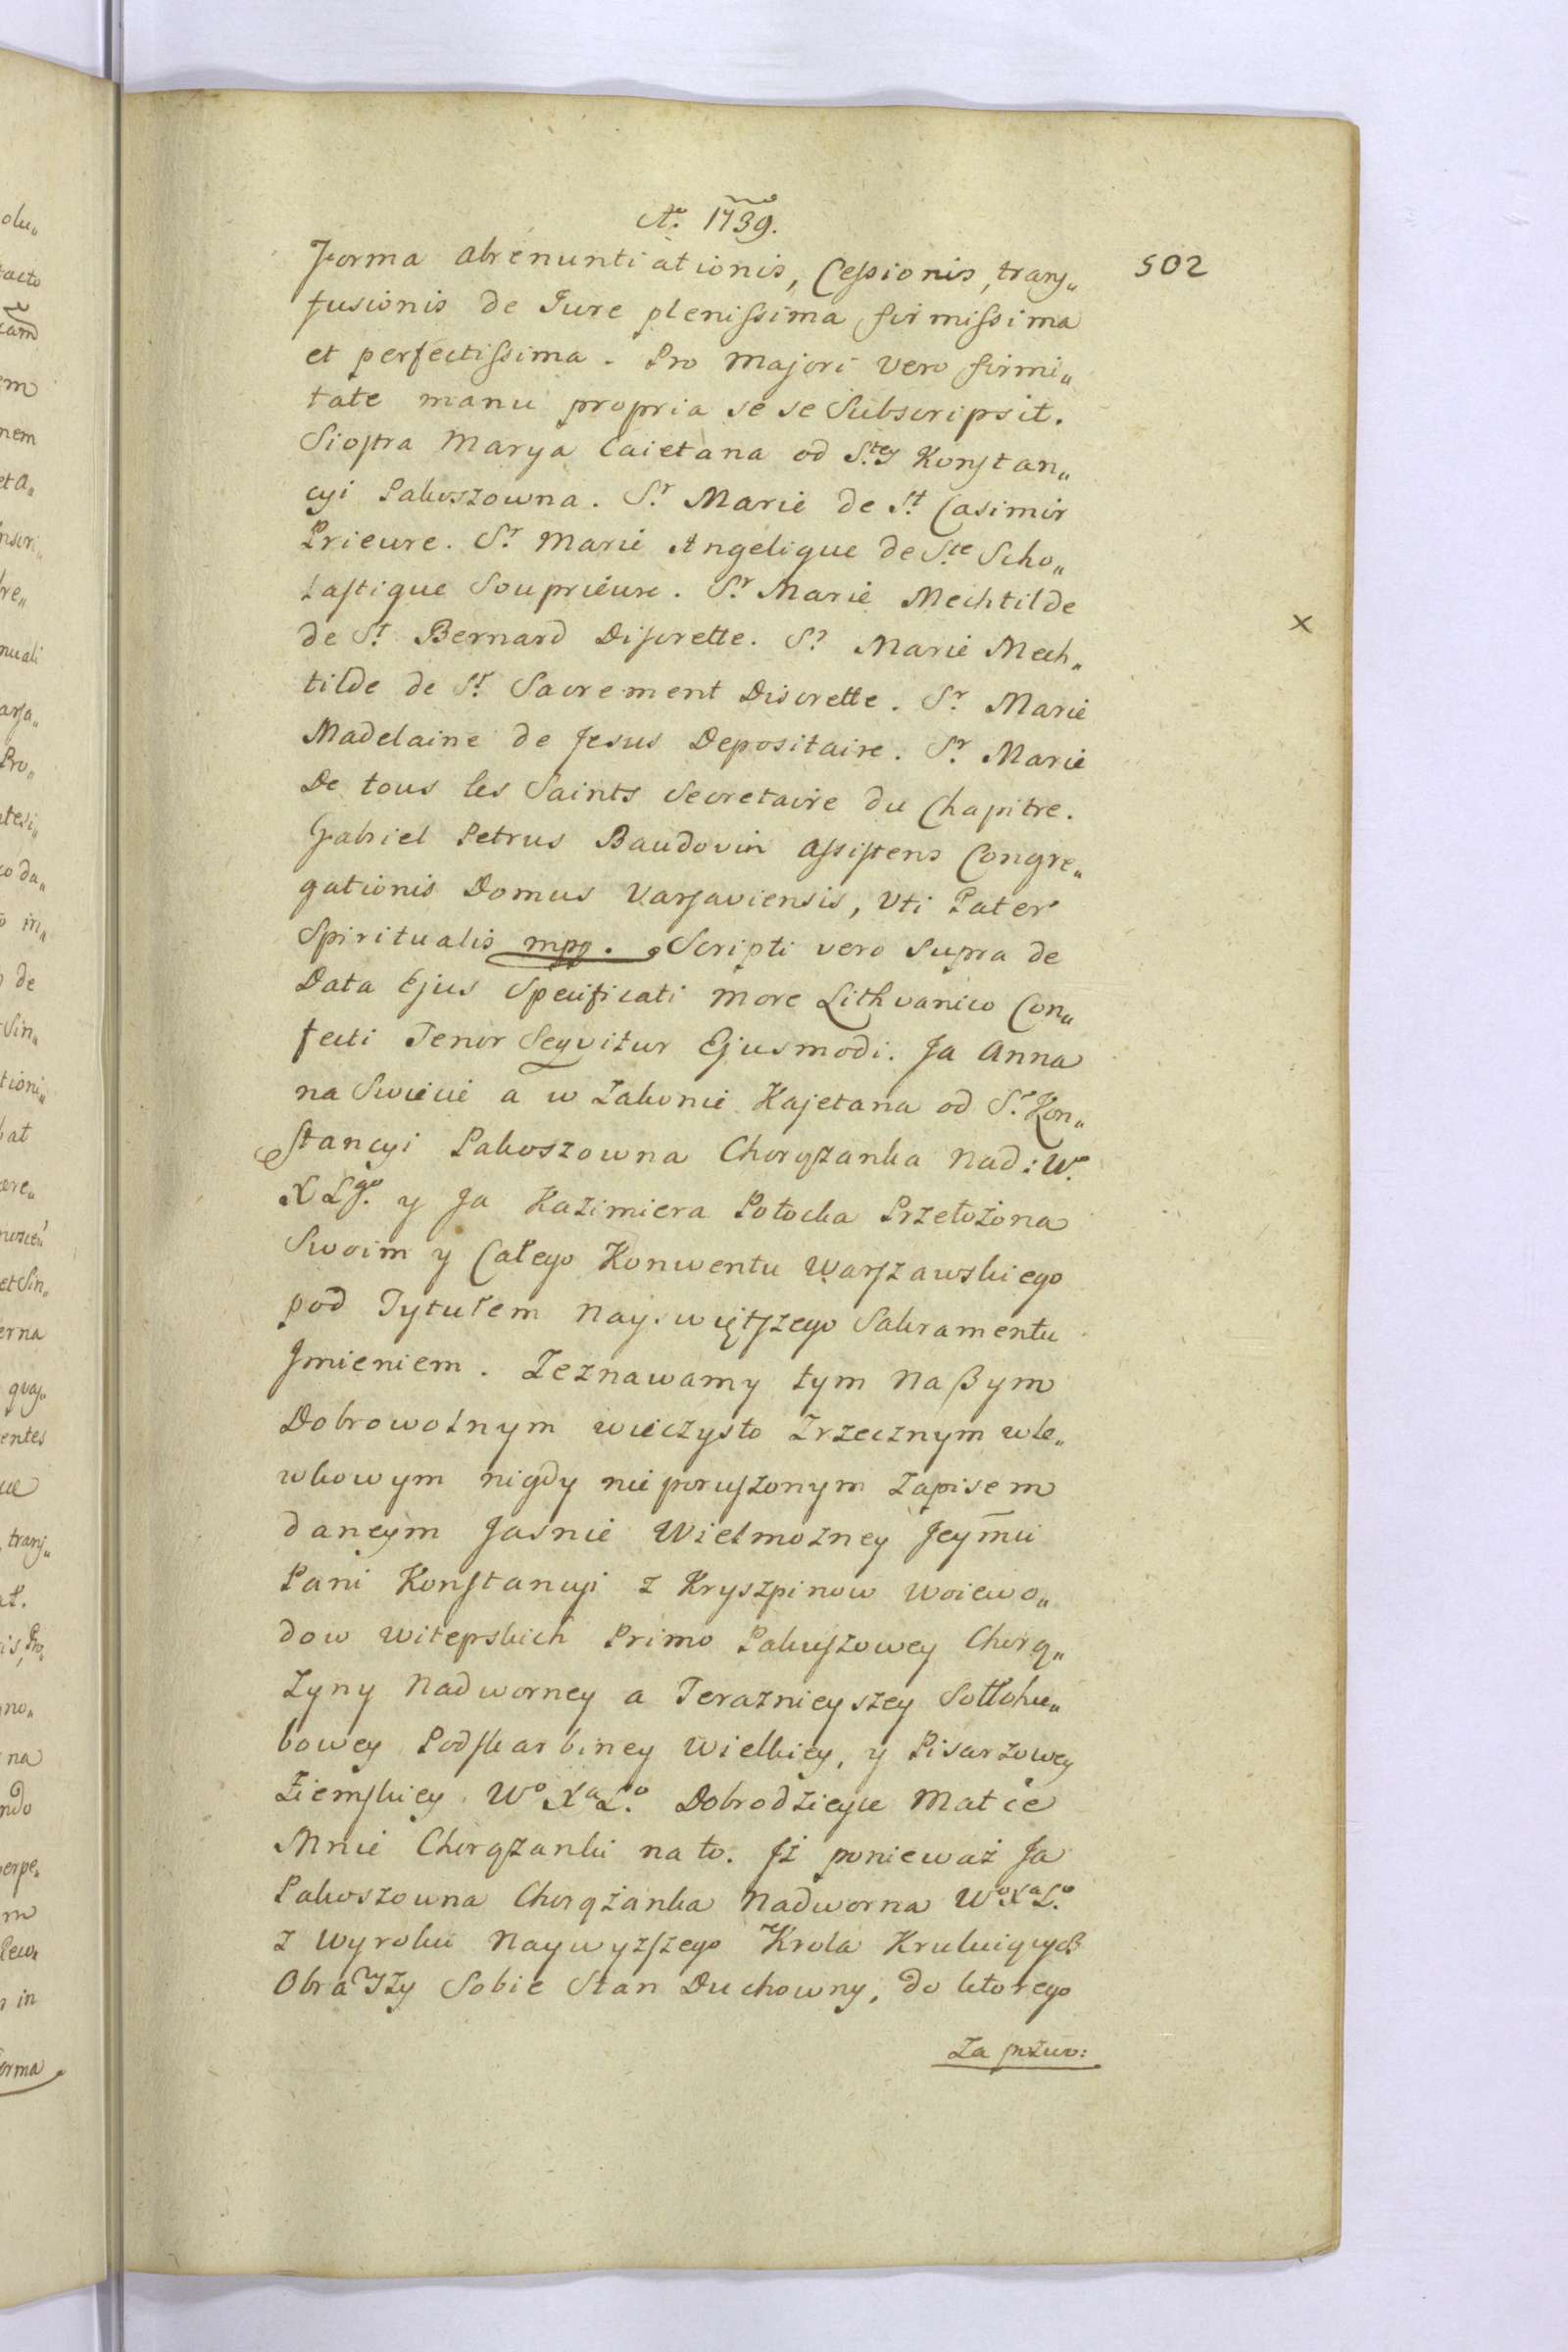 Ao. 1739.
502
Forma abrenuntiationis, Cessionis, trans„
fusionis de Jure plenissima firmissima
et perfectissima. Pro majori vero firmi„
tate manu propria se se Subscripsit.
Siostra Marya Caietana od S.tey Konstan„
cyi Pakoszowna. S.r Marie de S.t Casimir
Prieure. S.r Marie Angelique de S.te Scho„
lastique Souprieure. S.r Marie Mechtilde
de S.t Bernard Discrette. S.r Marie Mech„
tilde de S.t Sacrement Discrette. S.r Marie
Madelaine de Jesus Depositaire. S.r Marie
De tous les Saints Secretaire du Chapitre.
Gabriel Petrus Baudovin assistens Congre„
gationis Domus Varsaviensis, Uti Pater
Spiritualis mpp. Scripti vero Supra de
Data Ejus Specificati more Lithvanico Con„
fecti Tenor Seqvitur Ejusmodi. Ja Anna
na Swiecie a w Zakonie Kajetana od S.r Kon„
stancyi Pakoszowna Chorązanka Nad: W.o
X Lgo. y Ja Kazimiera Potocka Przełożona
Swoim y Całego Konwentu Warszawskiego
pod Tytułem Nayswiętszego Sakramentu
Jmieniem. Zeznawamy tym Naßym
Dobrowolnym wieczysto Zrzecznym wle„
wkowym nigdy nieporuszonym Zapisem
daneym Jasnie Wielmozney Jeymci
Pani Konstancyi z Kryszpinow Woiewo„
dow Witepskich Primo Pakuszowey Chorą„
zyny Nadworney a Teraznieyszey Sołłohu„
bowey Podskarbiney Wielkiey, y Pisarzowey
Ziemskiey Wo Xa L.o Dobrodzieyce Matce
Mnie Chorązanki na to. Jż ponieważ Ja
Pakoszowna Chorążanka Nadworna Wo Xa L.o
z Wyroku Naywyzszego Krola Kruluiących
Obrałszy Sobie Stan Duchowny, do ktorego